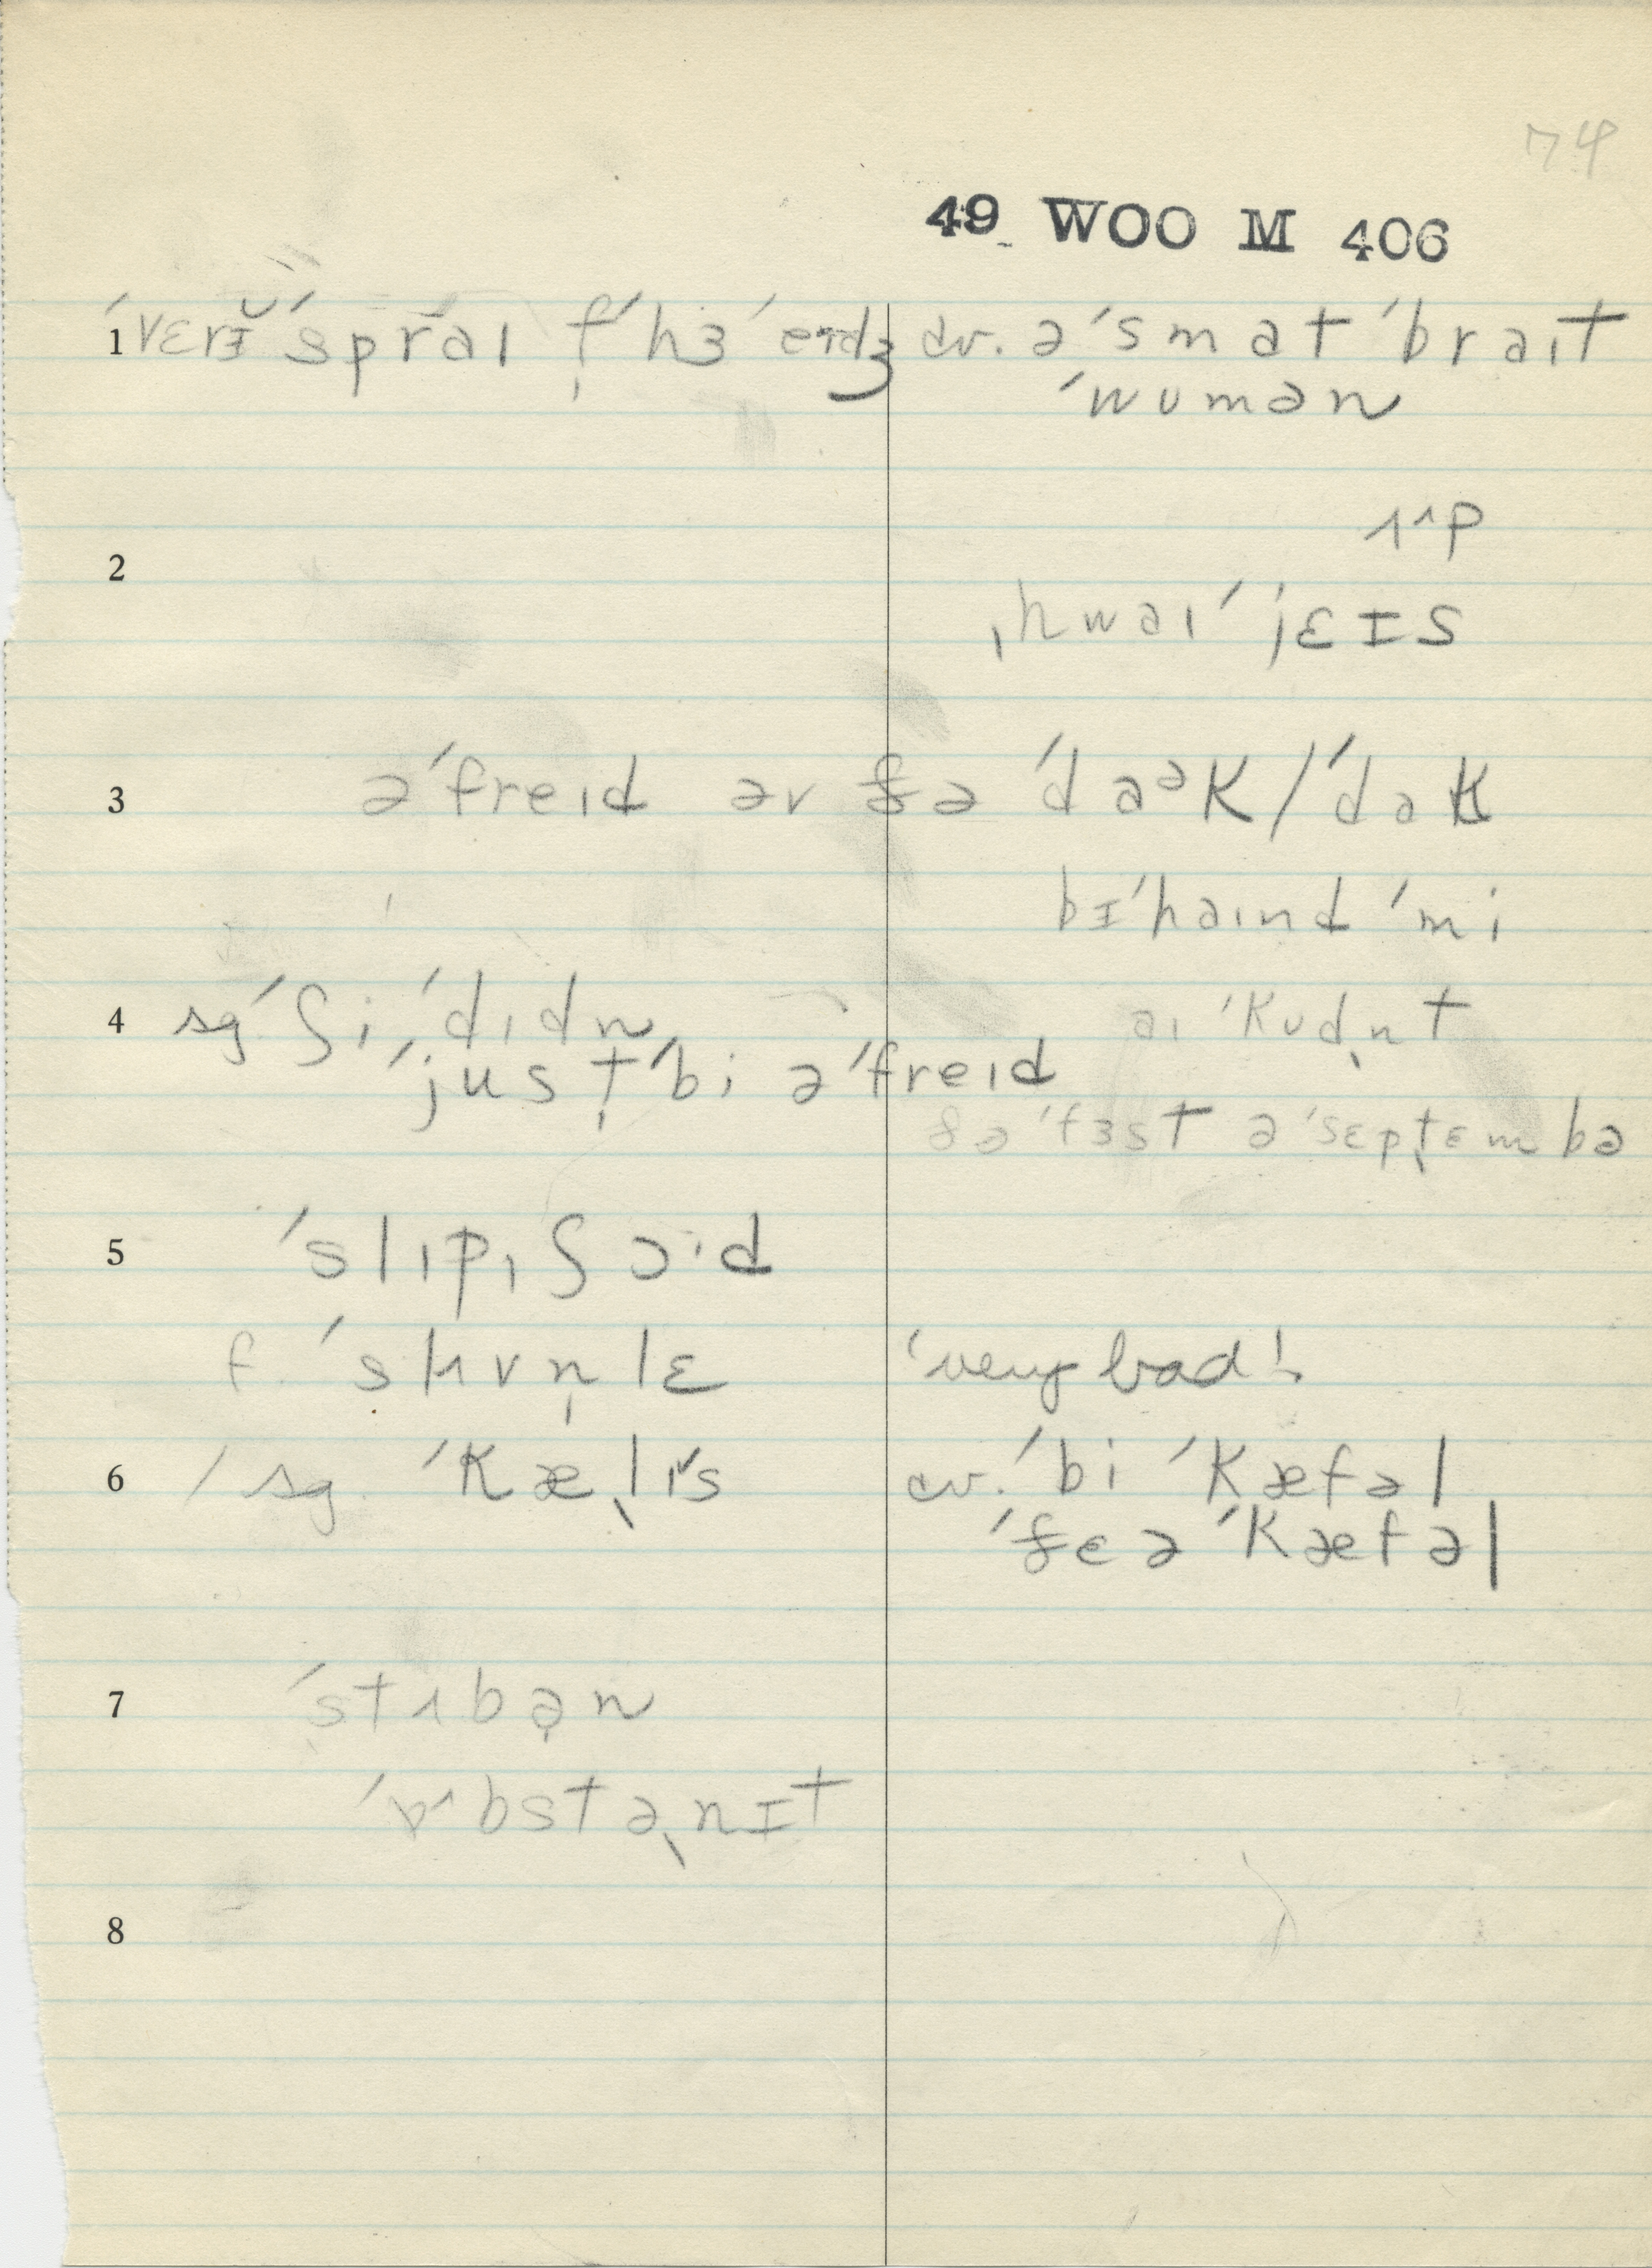 74
49 WOO M 406
1 ˈvɛrɪ̆ ˈspraɪ f̩ ˈhɜ ˈeɪdʒ cv. ə ˈsmat ˈbraɪt
ˈwumən
2 ʌ^p
ˌhwaɪ ˈjɛɪs
3 əˈfreɪd əv ðə ˈdaᵊk / ˈdak
bɪˈhaɪnd ˈmi
4 sg ˈʃi ˈdɪdn aɪ ˈkudn̩t
ˈjust̩ ˈbi əˈfreɪd
ðə ˈfɜst ə ˈsɛpt̩ɛmbə
5 ˈslɪpɪʃɔˑd
f. ˈslʌvn̩lɛ ˈvery bad!
6 / sg. ˈkæ̩lɪ̆s cv. ˈbi ˈkæfəl
ˈðɛə ˈkæfəl
7 ˈstʌbə̣n
ˈɒ^bstə̩nɪt
8